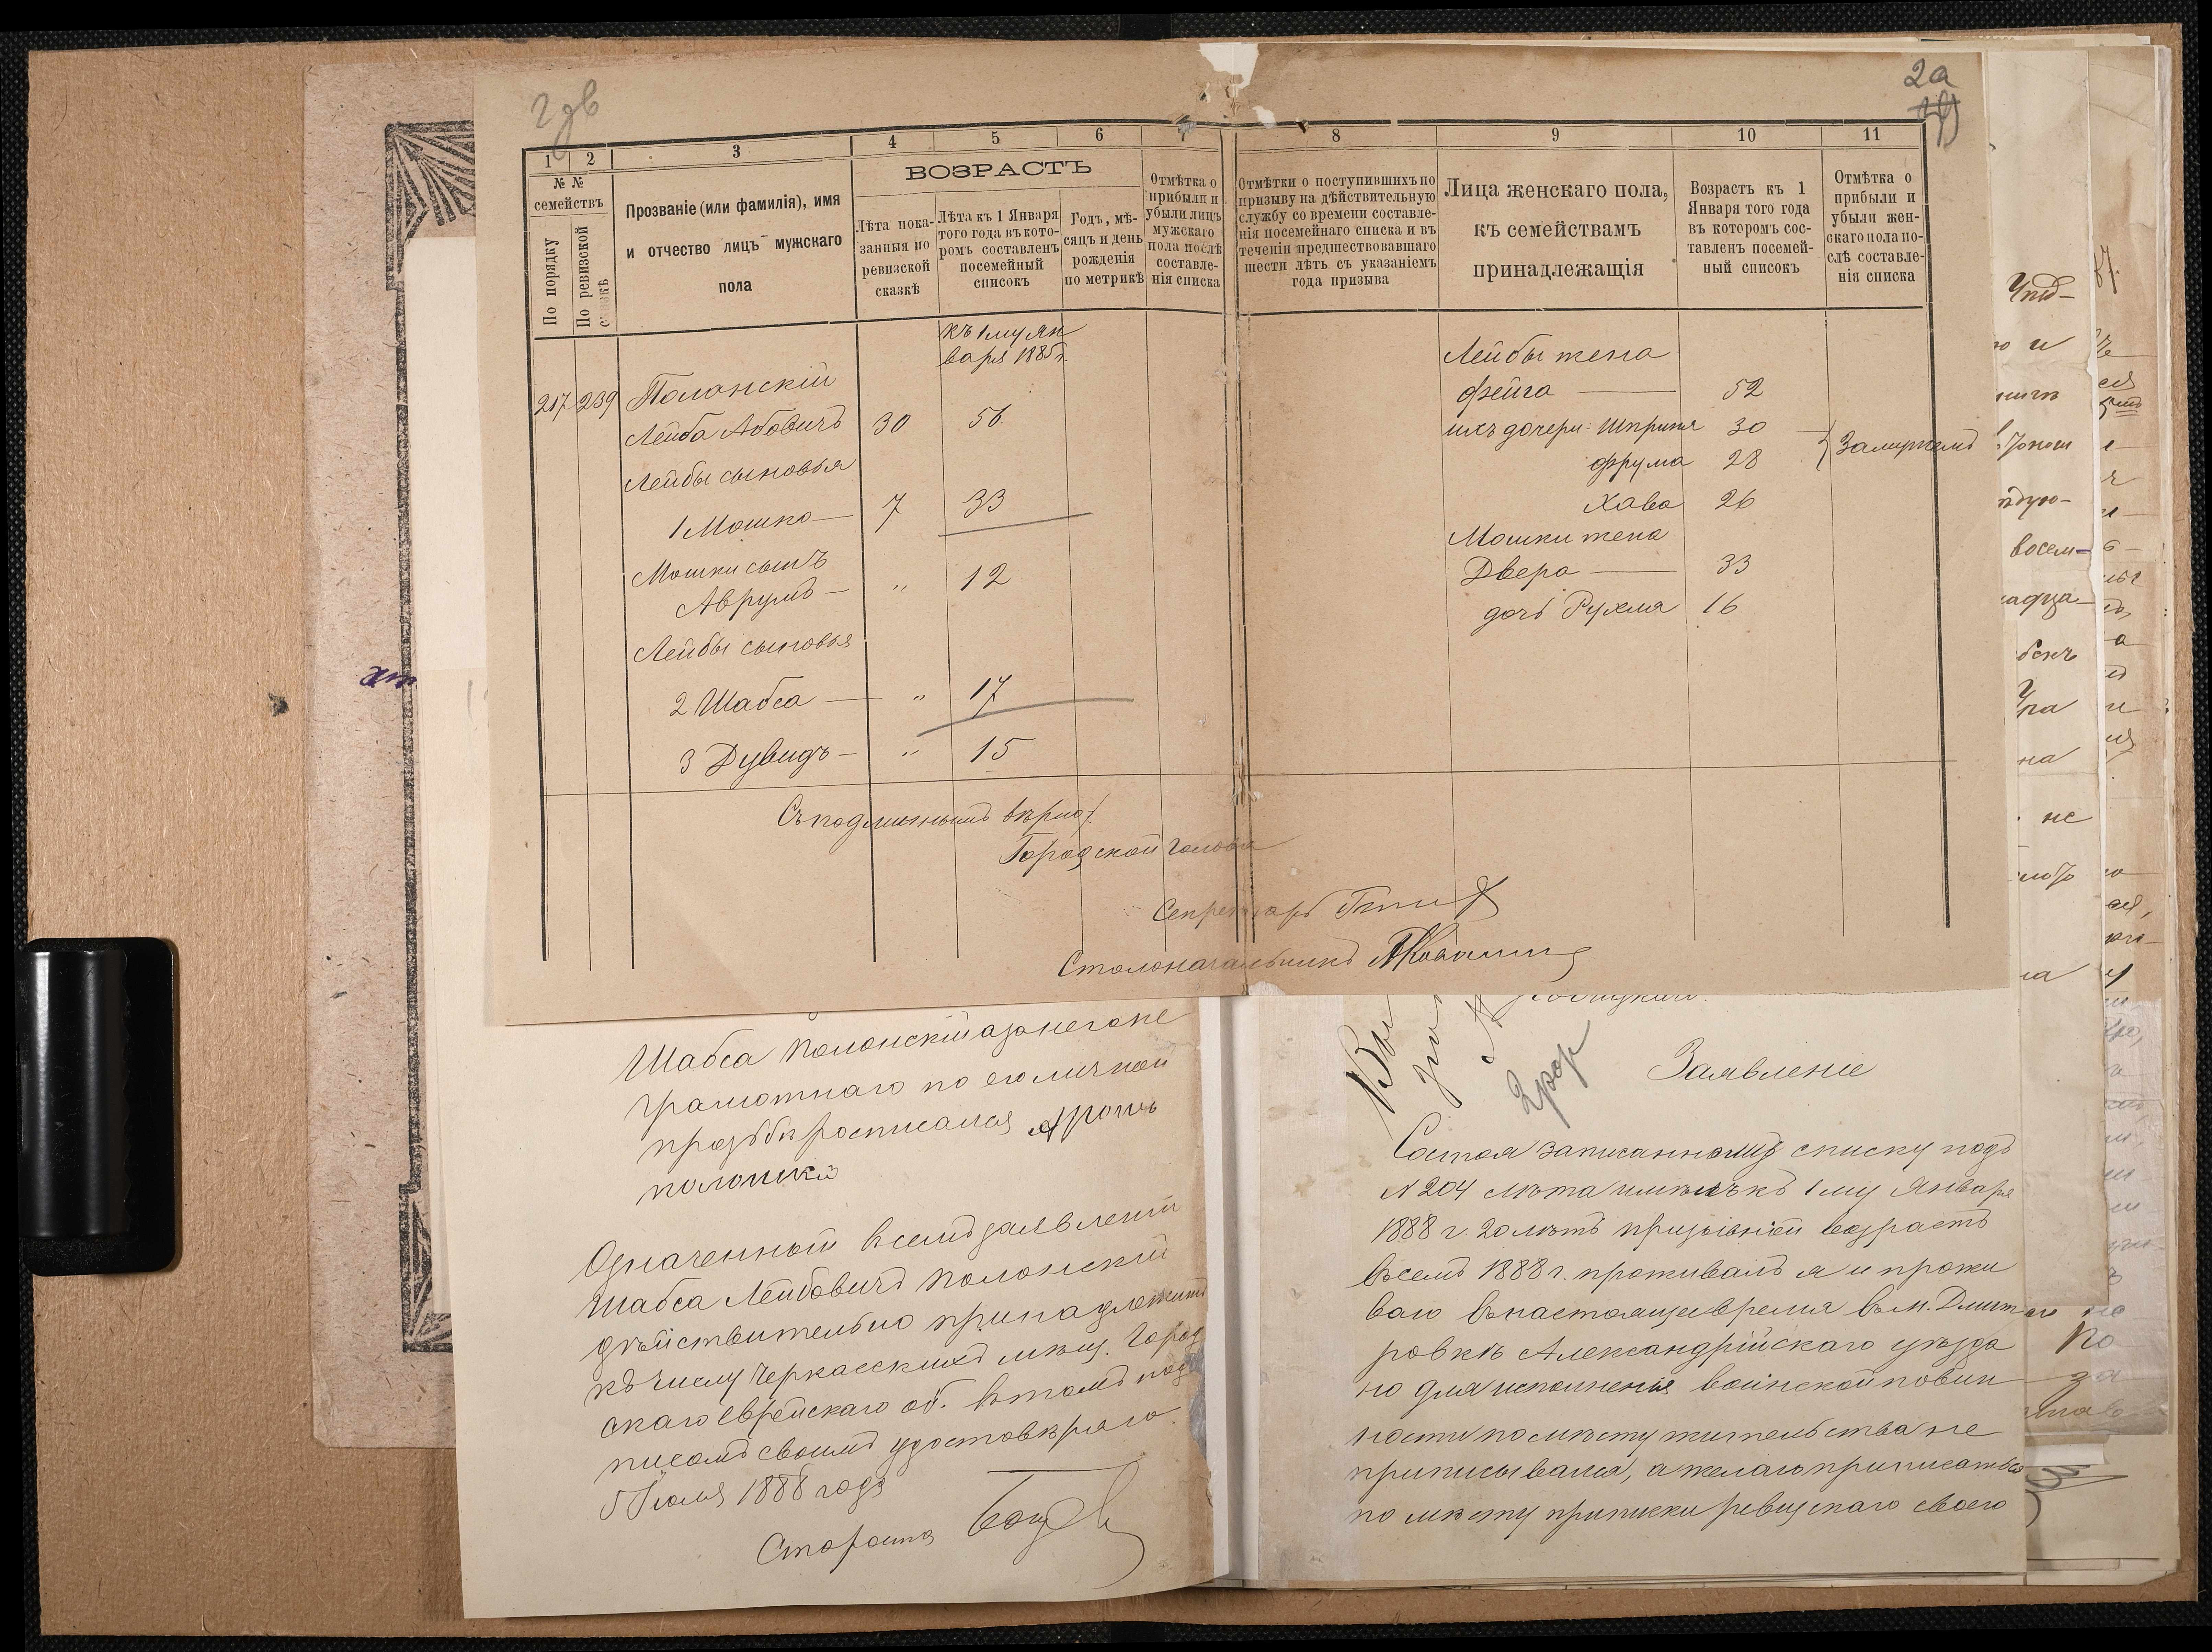 2а
1
2
3
4
5
6
7
8
9
10
11
№ №
семействъ
По порядку
По ревизской
Прозваніе (или фамилія), имя
и отчество лицъ мужскаго
пола
ВОЗРАСТЪ
Лѣта пока-
занныя по
ревизской
сказкѣ
Лѣта къ 1 Января
того года въ кото-
ромъ составленъ
посемейный
списокъ
Годъ, мѣ-
сяцъ и день
рожденія
по метрикѣ
Отмѣтка о
прибыли и
убыли лицъ
мужскаго
пола послѣ
составле-
нія списка
Отмѣтки о поступившихъ по
призыву на дѣйствительную
службу со времени составле-
нія посемейнаго списка и въ
теченіи предшествовавшаго
шести лѣтъ съ указаніемъ
года призыва
Лица женскаго пола,
къ семействамъ
принадлежащія
Возрастъ къ 1
Января того года
въ которомъ сос-
тавленъ посемей-
ный списокъ
Отмѣтка о
прибыли и
убыли жен-
скаго пола по-
слѣ составле-
нія списка
къ 1му Ян
варя 1885 г.
217 239 Полонскій
Лейба Абовичъ 30 56
Лейбы сыновья
1 Мошко — 7 33
Мошки сынъ
Аврумъ — " 12
Лейбы сыновья
2 Шабса — " 17
3 Дувидъ — " 15
Лейбы жена
Фейга — 52
ихъ дочери: Шприня 30
Фрума 28
Замужемъ
Хава 26
Мошки жена
Двера — 33
дочь Рухля 16
Съ подлиннымъ вѣрно:
Городской Голова
Секретарь
Столоначальникъ
Шабса Полонскій а за негоне
грамотнаго по его личной
прозьбѣ росписался Аронъ
полонскй
Означенный в семъ заявленіи
Шабса Лейбовичъ Полонскій
дѣйствительно принадлежитъ
къ числу Черкасскихъ мѣщ. Город
скаго Еврейскаго об. въ томъ под
писомъ своимъ удостовѣряю.
5 Іюля 1888 года
Староста
Заявленіе
Состоя записаннымъ списку подъ
№ 204 лѣта имѣя къ 1му Января
1888 г. 20 лѣтъ призывной возрастъ
въ семъ 1888 г. проживалъ я и прожи
ваю въ настоящее время въ м. Дмит
ровкѣ Александрійскаго уѣзда
но для исполненія воинской повин
ности по мѣсту жительства не
приписывался, а желаю приписаться
по мѣсту приписки ревизскаго своего